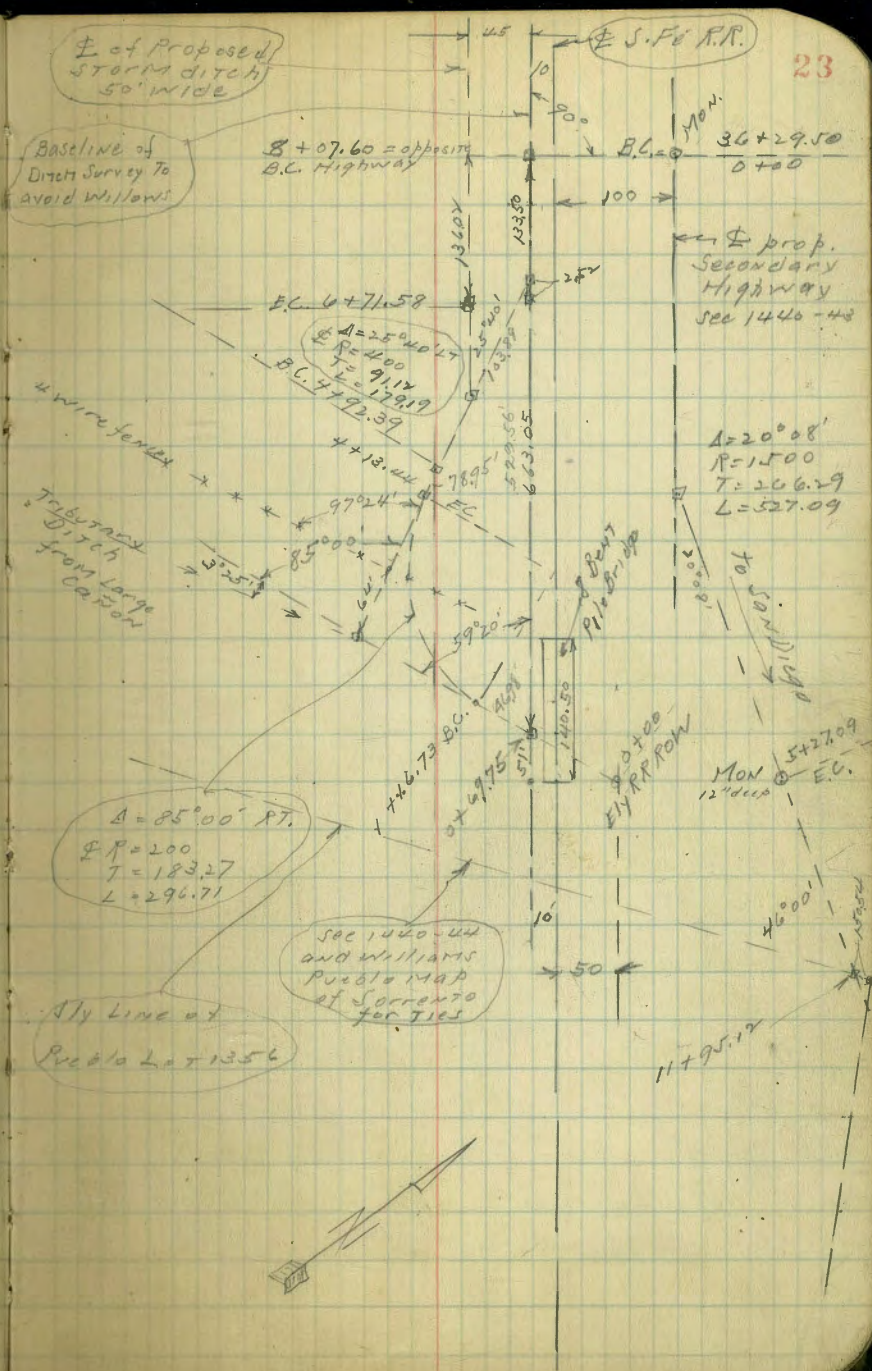 23
℄ of Proposed
STORM ditch
50' WIDE
45
10
℄ S.Fé R.R.
90°
Baseline of
Ditch Survey To
avoid Willows
8 + 07.60 = opposite
B.C. Highway
B.C. =
MON.
36+29.50
0+00
100
136.02
133.50
2.52
℄ prop.
Secondary
Highway
see 1440-43
E.C. 6+71.58
℄ Δ=25°40' LT
R=400
T= 91.12
L=179.19
25°40'
103.99
B.C. 4+92.39
4+13.44
78.95
529.56'
663.05
Δ=20°08'
R=1500
T=266.29
L=527.09
4 wire fence
97°24'
E.C.
85°00'
Tributary
Ditch
from Large
Cañon
3°25'
64'
59°20'
8 Bent
Pile Bridge
20°08'
To San Diego
140.50
1+46.73 B.C.
0+69.75
51'
0+00
Ely RR ROW
MON
12" deep
5+27.09
E.C.
Δ=85°00' RT.
℄ R=200
T=183.27
L=296.71
46°00'
10'
See 1440-44
and Williams
Pueblo Map
of Sorrento
for Ties
50
11+95.12
Sly Line of
Pueblo Lot 1356